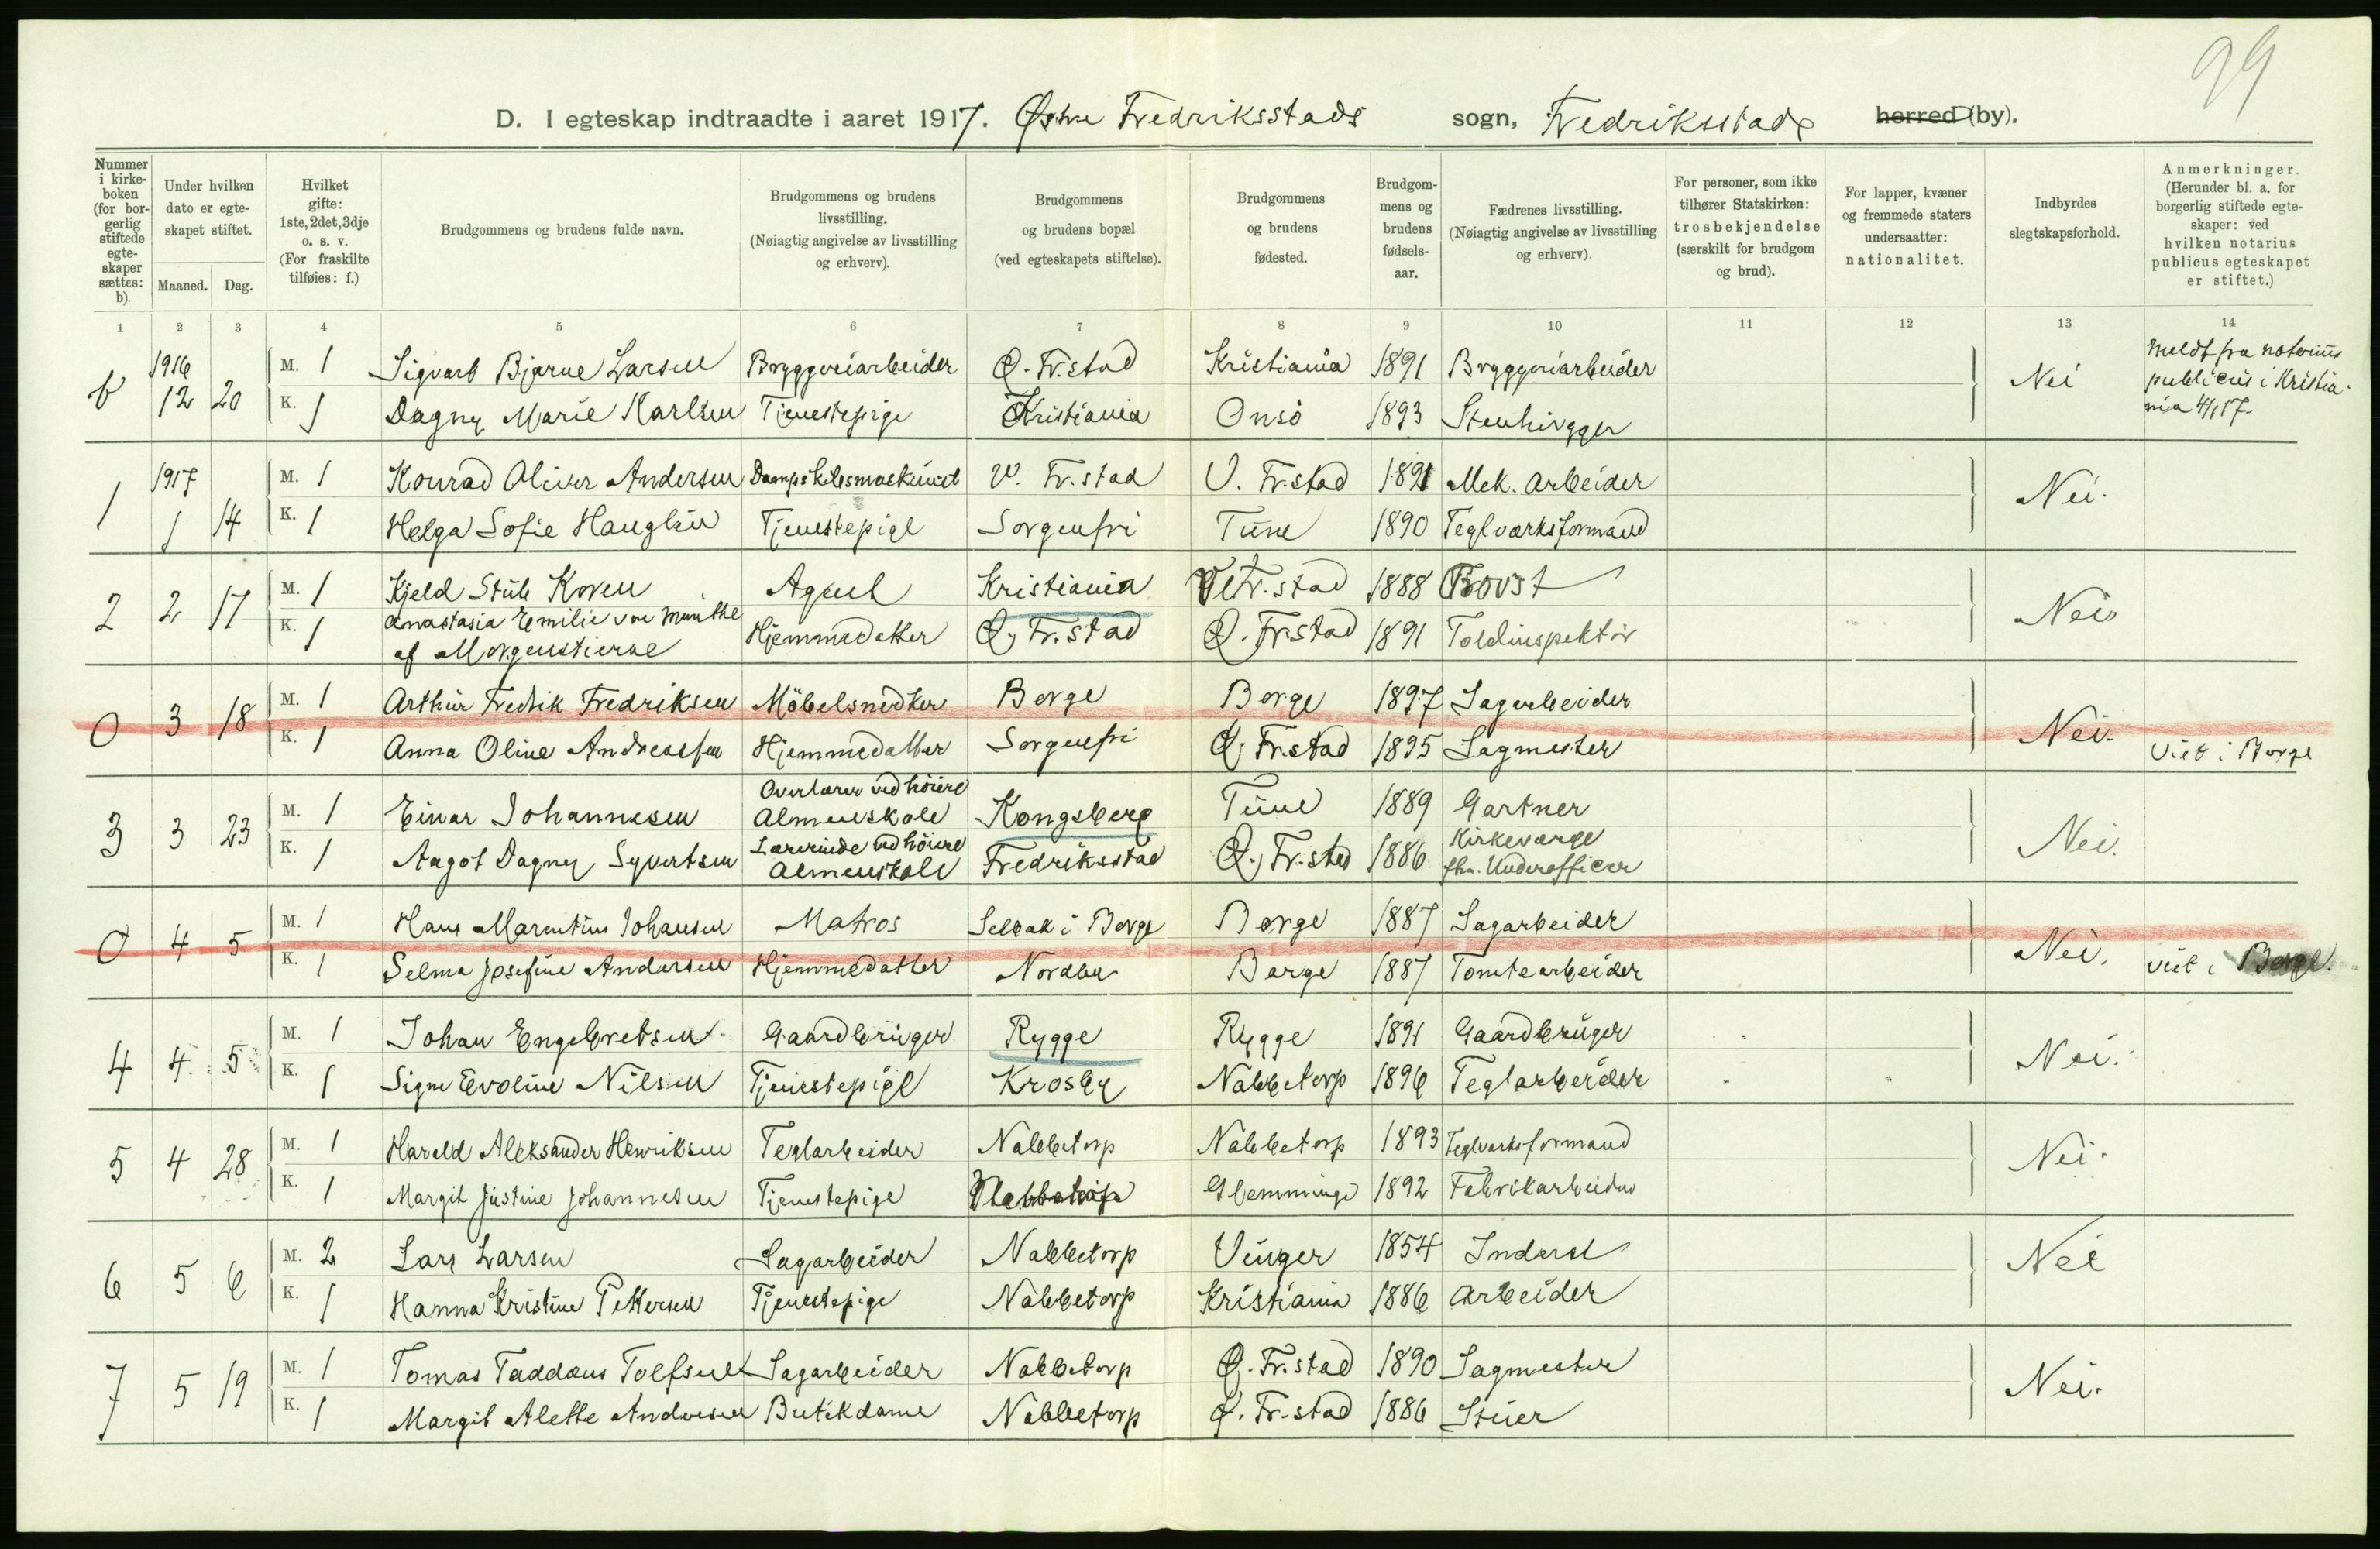 99
D. I egteskap indtraadte i aaret 1917. Østre Fredriksstads sogn, Fredriksstads herred (by).
Nummer i kirkeboken (for borgerlig stiftede egteskaper sættes: b).
Under hvilken dato er egteskapet stiftet.
Maaned. Dag.
Hvilket gifte: 1ste, 2det, 3dje o. s. v. (For fraskilte tilføies: f.)
Brudgommens og brudens fulde navn.
Brudgommens og brudens livsstilling. (Nøiagtig angivelse av livsstilling og erhverv).
Brudgommens og brudens bopæl (ved egteskapets stiftelse).
Brudgommens og brudens fødested.
Brudgommens og brudens fødselsaar.
Fædrenes livsstilling. (Nøiagtig angivelse av livsstilling og erhverv).
For personer, som ikke tilhører Statskirken: trosbekjendelse (særskilt for brudgom og brud).
For lapper, kvæner og fremmede staters undersaatter: nationalitet.
Indbyrdes slegtskapsforhold.
Anmerkninger. (Herunder bl. a. for borgerlig stiftede egteskaper: ved hvilken notarius publicus egteskapet er stiftet.)
1 2 3 4 5 6 7 8 9 10 11 12 13 14
b 1916 12 20 M. 1 Sigvart Bjarne Larsen Bryggeriarbeider Ø. Fr.stad Kristiania 1891 Bryggeriarbeider Nei meldt fra notarius publicus i Kristiania 4/1 17.
K. 1 Dagny Marie Karlsen Tjenestepige Kristiania Onsö 1893 Stenhugger
1 1917 1 14 M. 1 Konrad Oliver Andersen Dampskibsmaskinist V. Fr.stad V. Fr.stad 1891 Mek. Arbeider Nei.
K. 1 Helga Sofie Hauglin Tjenestepige Sorgenfri Tune 1890 Teglværksformand
2 2 17 M. 1 Kjeld Stub Koren Agent Kristiania V. Fr.stad 1888 Provst Nei
K. 1 Anastasia Emilie von Munthe af Morgenstierne Hjemmedatter Ø. Fr.stad Ø. Fr.stad 1891 Toldinspektör
0 3 18 M. 1 Arthur Fredrik Fredriksen Möbelsnedker Borge Borge 1897 Sagarbeider Nei. Viet i Borge
K. 1 Anna Oline Andreassen Hjemmedatter Sorgenfri Ø. Fr.stad 1895 Sagmester
3 3 23 M. 1 Einar Johannesen Overlærer ved höiere Almenskole Kongsberg Tune 1889 Gartner Nei.
K. 1 Aagot Dagny Syvertsen Lærerinde ved höiere Almenskole Fredriksstad Ø. Fr.stad 1886 Kirkeværge fhv. Underofficer
0 4 5 M. 1 Hans Marentius Johansen Matros Selbak i Borge Borge 1887 Sagarbeider Nei. viet i Borge.
K. 1 Selma Josefine Andersen Hjemmedatter Nordby Borge 1887 Tomtearbeider
4 4 5 M. 1 Johan Engebretsen Gaardbruger Rygge Rygge 1891 Gaardbruger Nei.
K. 1 Signe Evoline Nilsen Tjenestepige Krosby Nabbetorp 1896 Teglarbeider
5 4 28 M. 1 Harald Aleksander Henriksen Teglarbeider Nabbetorp Nabbetorp 1893 Teglværksformand Nei.
K. 1 Margit Justine Johannesen Tjenestepige Nabbetorp Glemminge 1892 Fabrikarbeider
6 5 6 M. 2 Lars Larsen Sagarbeider Nabbetorp Vinger 1854 Inderst Nei
K. 1 Hanna Kristine Pettersen Tjenestepige Nabbetorp Kristiania 1886 Arbeider
7 5 19 M. 1 Tomas Taddæus Tollefsen Sagarbeider Nabbetorp Ø. Fr.stad 1890 Sagmester Nei.
K. 1 Margit Alette Andresen Butikdame Nabbetorp Ø. Fr.stad 1886 Stuer